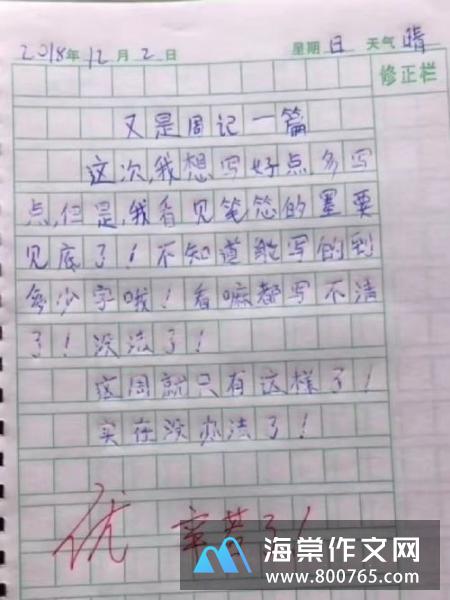 2018年12月2日 星期日 天气晴
修正栏
又是周记一篇
这次,我想写好点多写
点,但是,我看见笔芯的墨要
见底了!不知道能写的到
多少字哦!看嘛都写不清
了!没法了!
这周就只有这样了!
实在没办法了!
优 辛苦了!
海棠作文网
www.800765.com